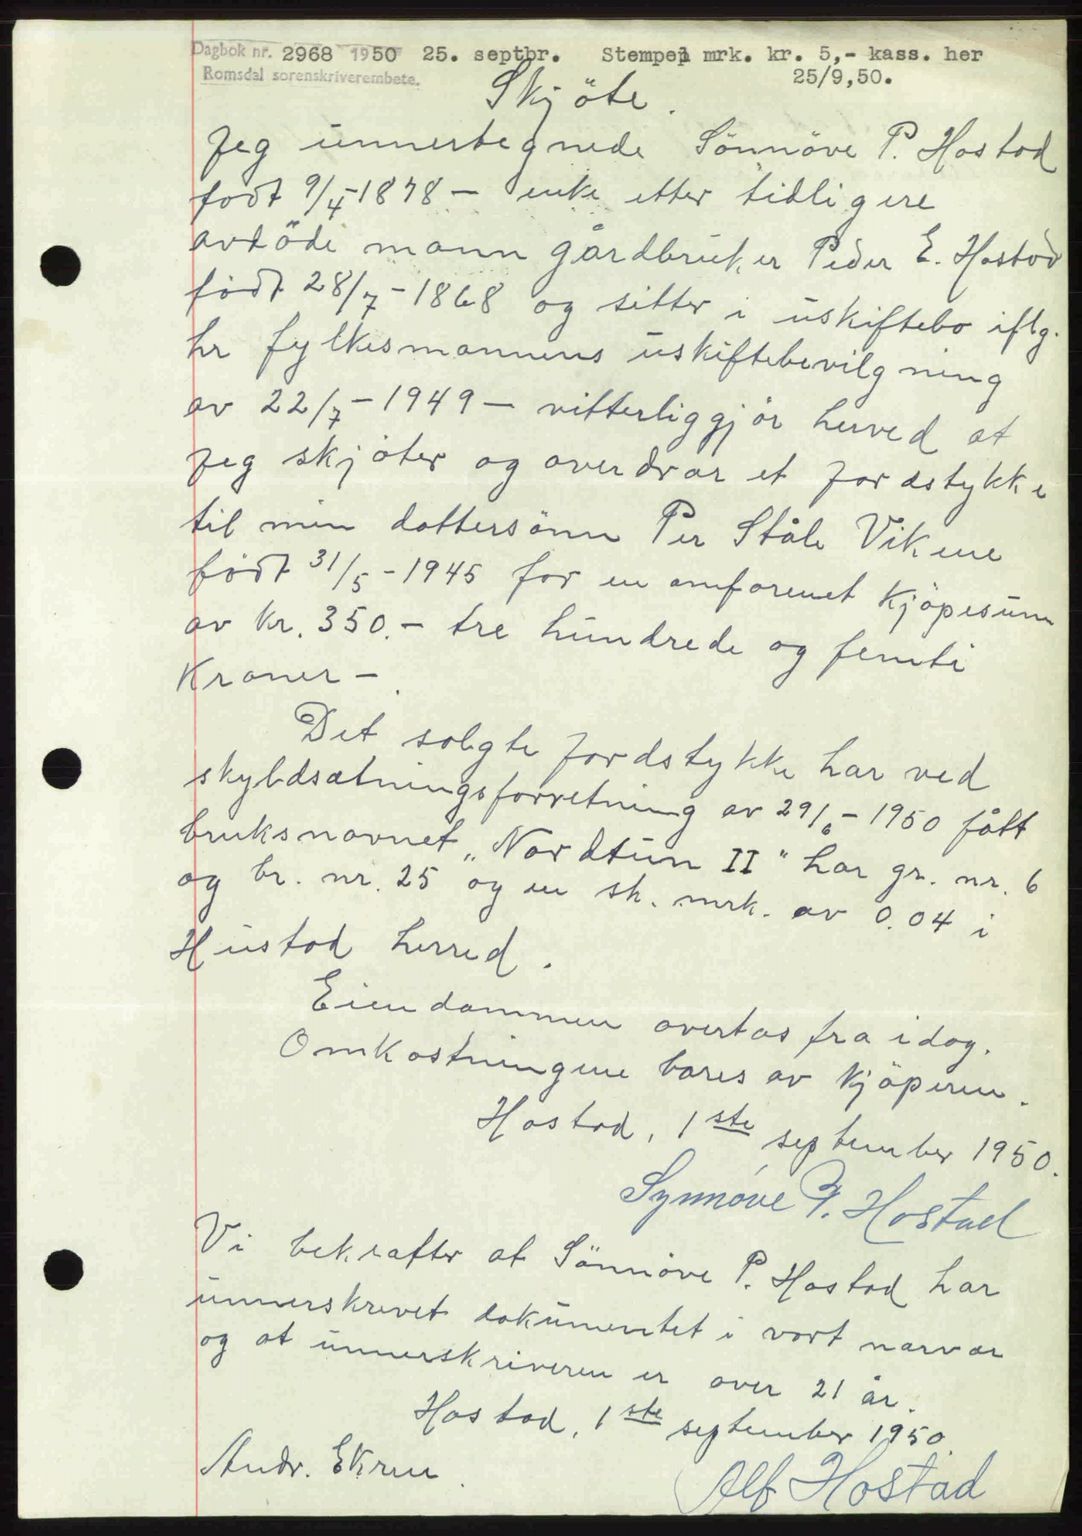 Dagbok nr. 2968 1950 25. septbr. Stempel mrk. kr. 5,- kass. her
Romsdal sorenskriverembete. 25/9,50.
Skjöte.
Jeg unnertegnede Sönnöve P. Hostad
født 9/4-1878 - enke etter tidligere
avdöde mann gårdbruker Peder E. Hostad
født 28/7-1868 og sitter i uskiftebo iflg.
hr fylkesmannens uskiftebevilgning
av 22/7-1949 - vitterliggjör herved at
jeg skjöter og overdrar et jordstykke
til min dottersönn Per Ståle Vikene
født 31/5-1945 for en omforenet kjöpesum
av kr. 350.- tre hundrede og femti
Kroner-.
Det solgte jordstykke har ved
skyldsætningsforretning av 29/6-1950 fått
bruksnavnet „Nordtun II" har gr. nr. 6
og br. nr. 25 og en sk. mrk. av 0.04 i
Hustad herred.
Eiendommen overtas fra idag.
Omkostningene bæres av kjöperen.
Hostad, 1ste september 1950.
Synnöve P. Hostad
Vi bekrefter at Sönnöve P. Hostad har
unnerskrevet dokumentet i vort nærvær
og at unnerskriveren er over 21 år.
Hostad, 1ste september 1950.
Andr. Ekren. Alf Hostad